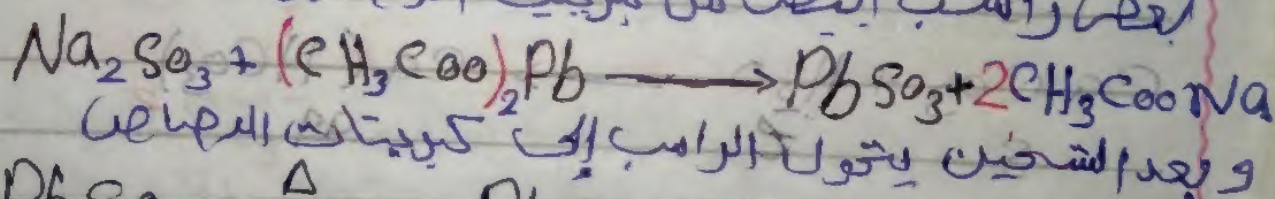 راسب أبيض من
Na₂So₃ + (CH₃Coo)₂Pb ⟶ PbSo₃ + 2CH₃CooNa
و بعد التسخين يتحول الراسب إلى كبريتات الرصاص
Δ